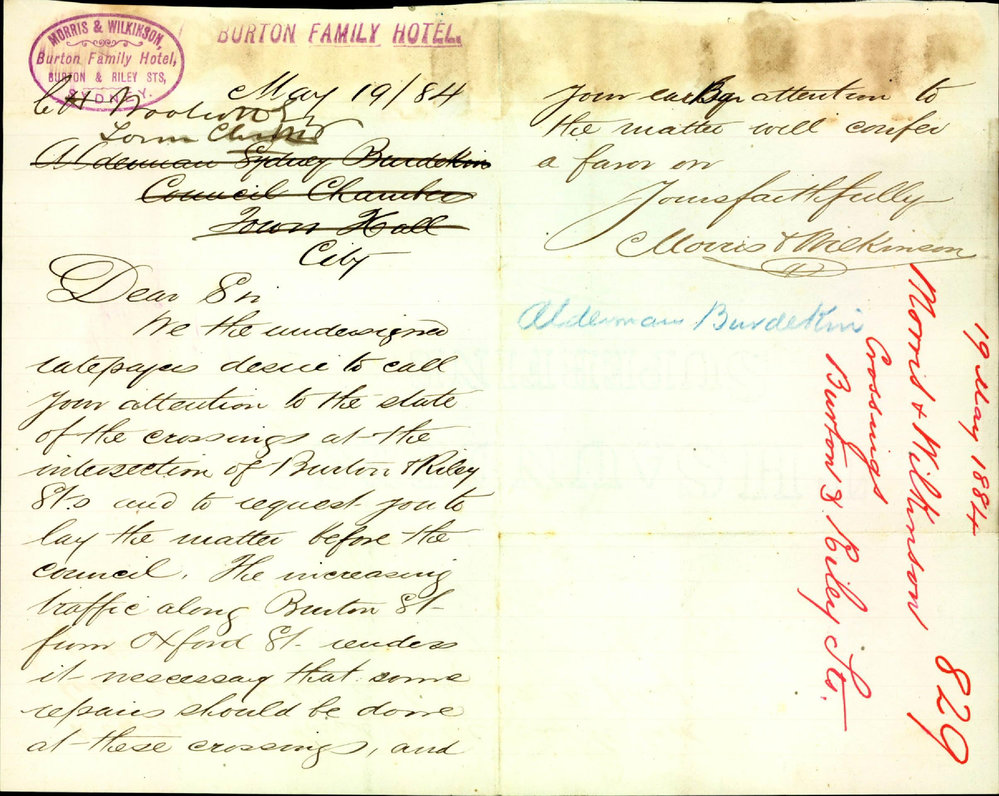 MORRIS & WILKINSON,
Burton Family Hotel,
BURTON & RILEY STS,
SYDNEY.
BURTON FAMILY HOTEL.
May 19/84
C H Woolcott
Town Clerk
Alderman Sydney Burdekin
Council Chambers
Town Hall
City
Dear Sir
We the undersigned
ratepayers desire to call
your attention to the state
of the crossings at the
intersection of Burton & Riley
Sts and to request you to
lay the matter before the
council. The increasing
traffic along Burton St
from Oxford St. renders
it necessary that some
repairs should be done
at these crossings, and
your early attention to
the matter will confer
a favor on
Yours faithfully
Morris & Wilkinson
Alderman Burdekin
19 May 1884
Morris & Wilkinson 829
Crossings
Burton & Riley Sts.